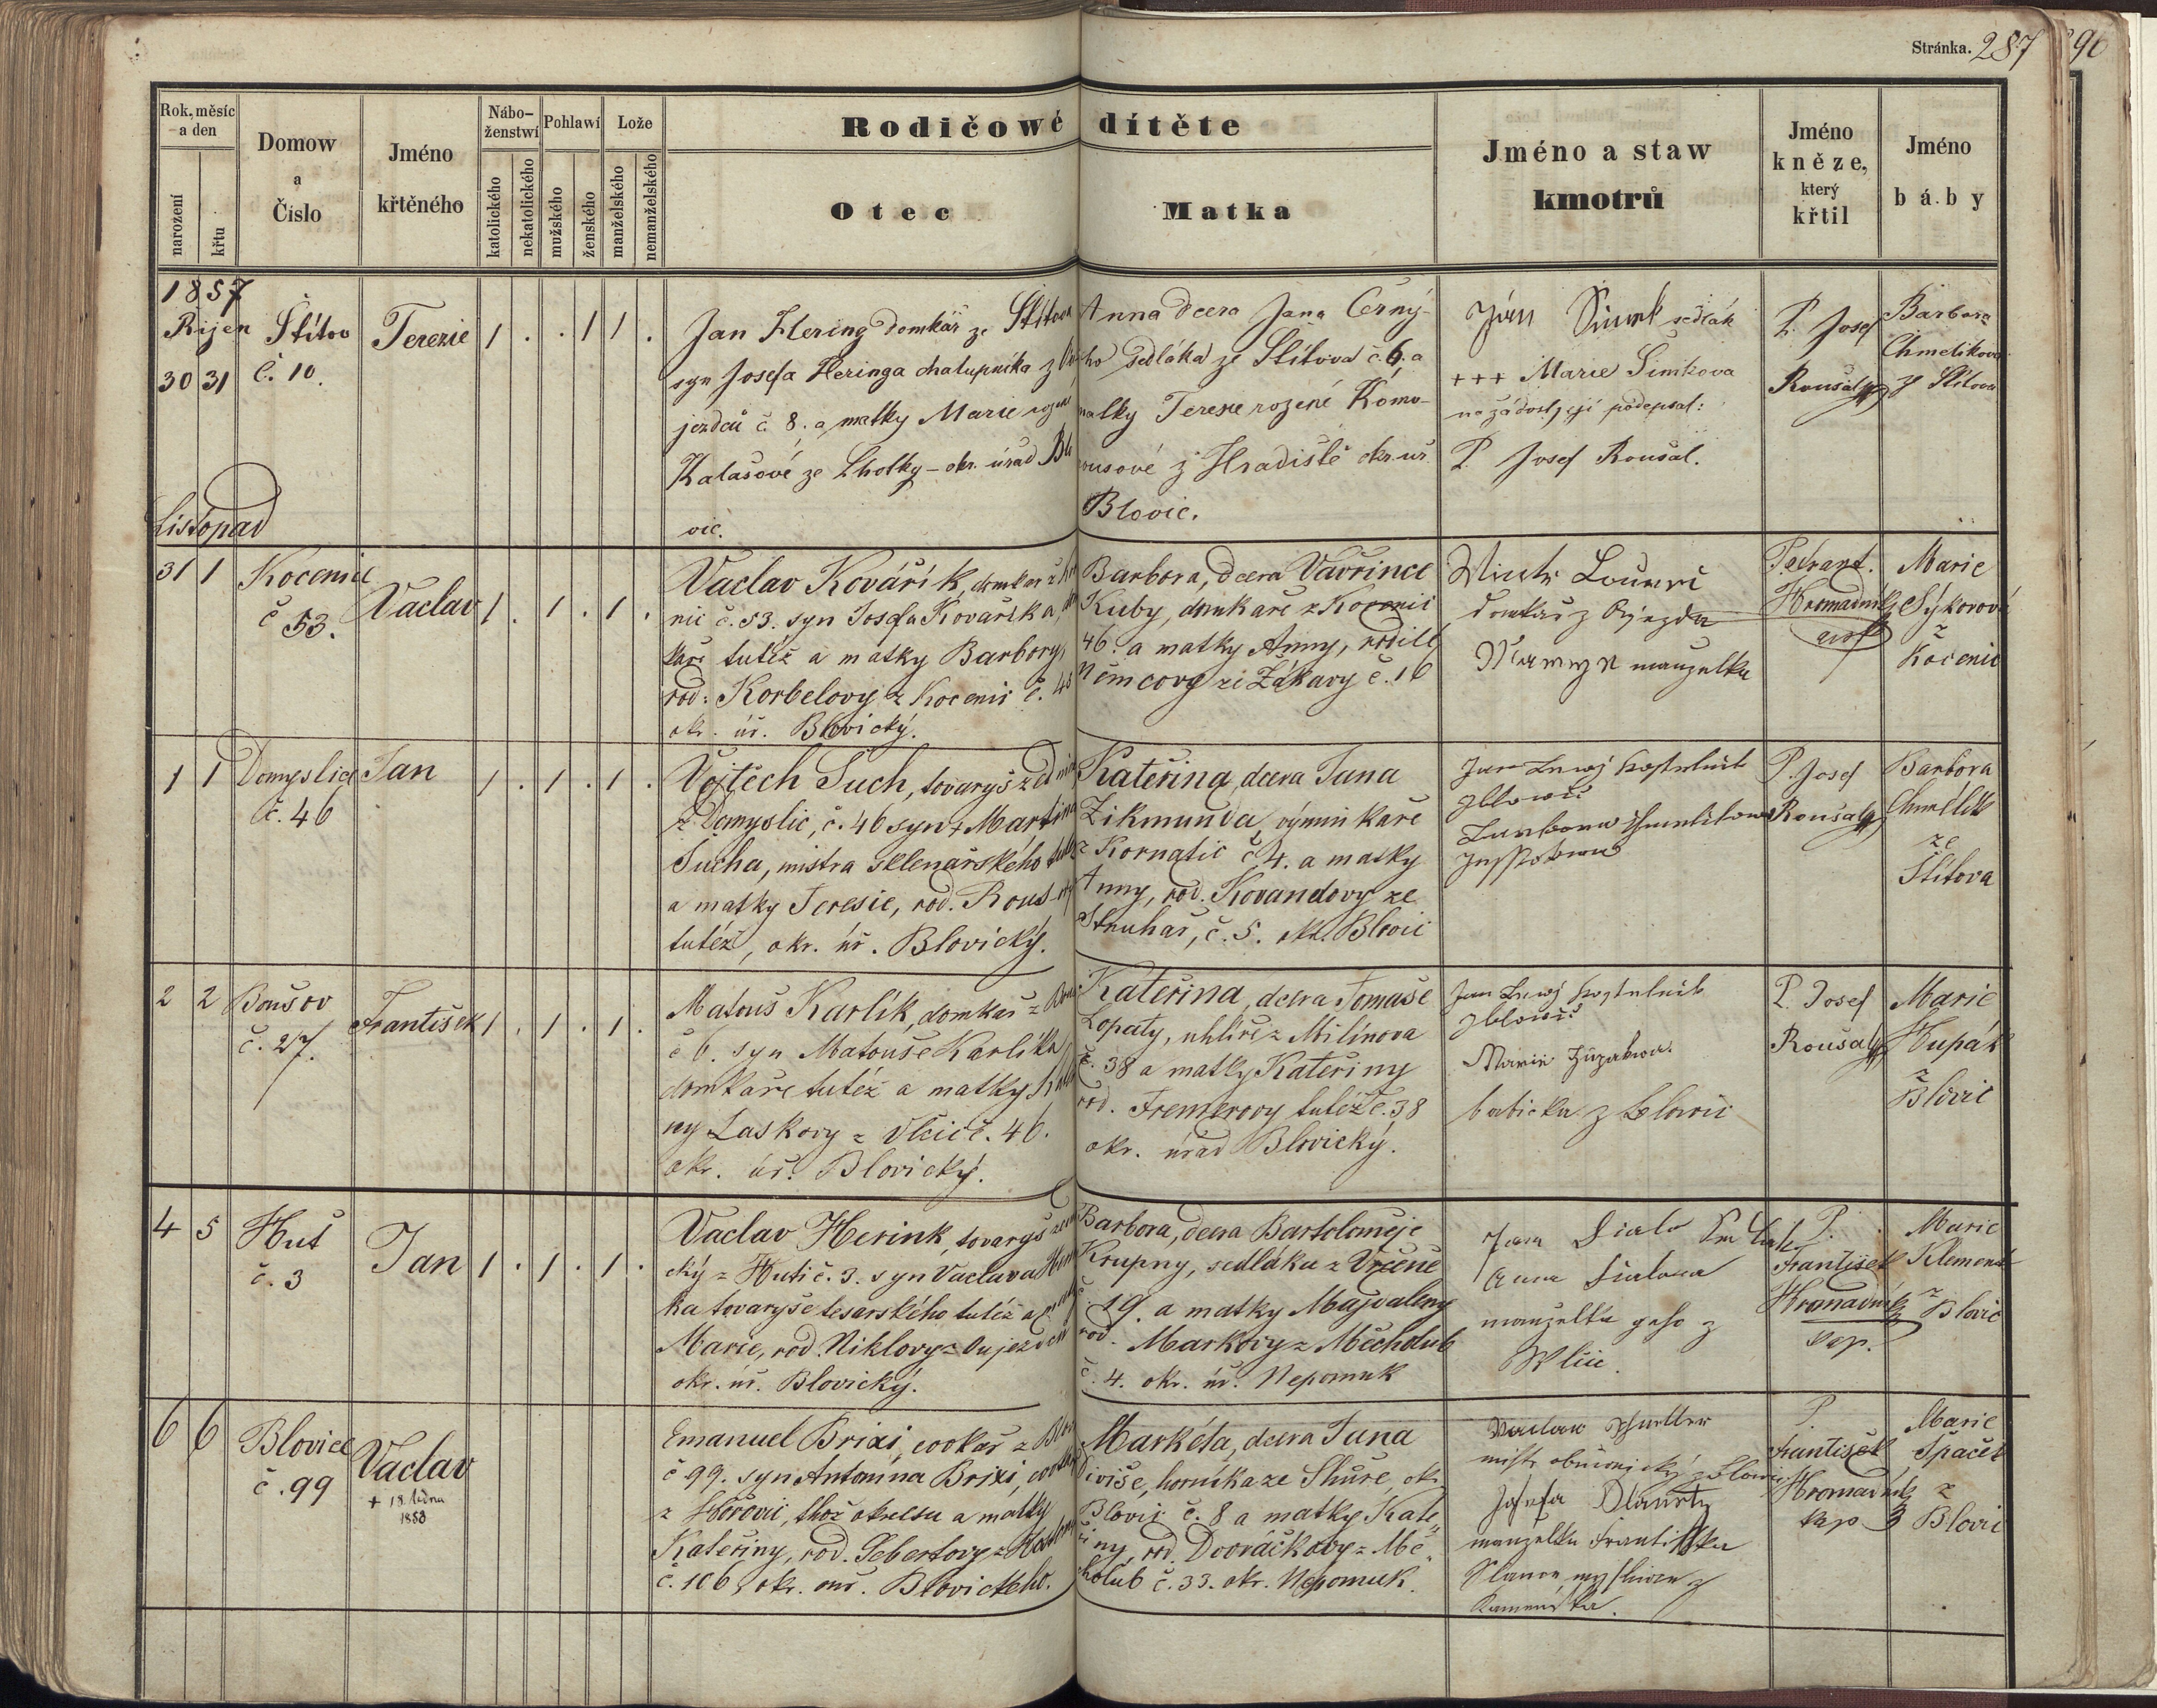 Stránka. 287
96
Rok, měsíc
a den
narození
křtu
Domow
a
Číslo
Jméno
křtěného
Nábo-
ženstwí
katolického
nekatolického
Pohlawí
mužského
ženského
Lože
manželského
nemanželského
Rodičowé dítěte
Otec
Matka
Jméno a staw
kmotrů
Jméno
kněze,
který
křtil
Jméno
báby
1857
Říjen
30 31
Štítov
č. 10.
Terezie
1 . . 1 1 .
Jan Hering domkář ze Štítova
syn Josefa Heringa chalupníka z
jezdců č. 8. a matky Marie rozené
Kalašové ze Lhotky - okr. úřad Blo
vic.
Anna dcera Jana Černý-
ho sedláka ze Štítova č. 6. a
matky Terezie rozené Komo-
rousové z Hradiště okr. úř.
Blovic.
Ján Šimek sedlák
+++ Marie Šimkova
na žádost její podepsal:
P. Josef Roušal.
P. Josef
Roušal
Barbora
Chmelikova
ze Štítova
Listopad
31 1
Kocenic
č 53.
Vaclav
1 . 1 . 1 .
Vaclav Kovářík, domkař z Ko
nic č. 53. syn Josefa Kovaříka,
kaře tutéž a matky Barbory,
rod. Korbelovy z Kocenic č. 43
okr. úř. Blovický.
Barbora, dcera Vavřince
Kuby, domkaře z Kocenic
46. a matky Anny, rodilé
Němcovy ze Žákavy č. 16
domkař z Ojezda
manzelka
Hromadník
Marie
Sýkorová
z
Kočenic
1 1
Domyslice
č. 46
Jan
1 . 1 . 1 .
Vojtěch Such, tovaryš zedni
z Domyslic, č. 46 syn + Martina
Sucha, mistra sklenařského tutéž
a matky Teresie, rod. Rous
tutéž, okr. úř. Blovický.
Kateřina, dcera Jana
Zikmunda, výminkaře
z Kornatic č 4. a matky
Anny, rod. Kovandovy ze
Struhař, č. 5. okr. Blovic
P. Josef
Roušal
Barbora
Chmelík
ze
Štítova
2 2
Boušov
č. 27.
František
1 . 1 . 1 .
Matouš Karlík, domkař z
č 6. syn Matouše Karlíka
domkaře tutéž a matky Kate
ny Laskovy z Vlčic č. 46.
okr. úř. Blovický.
Kateřina, dcera Tomaše
Lopaty, uhlíře z Milínova
č. 38 a matky Kateřiny
rod. Fremerovy tutéž č. 38
okr. úřad Blovický.
babicka z Blowic
P. Josef
Roušal
Marie
Hupák
z
Blovic
4 5
Huť
č. 3
Jan
1 . 1 . 1 .
Vaclav Herink, tovaryš
cký z Hutí č. 3. syn Vaclava
ka tovaryše tesarského tutéž a
Marie, rod. Niklovy z Oujezdce
okr. úř. Blovický.
Barbora, dcera Bartoloměje
Krupny, sedláka z Vrčeně
č. 19. a matky Majdaleny
rod. Markovy z Měcholub
č. 4. okr. úř. Nepomuk
manzelka geho z
Wlčic.
P.
František
Hromadník
kap.
Marie
Klement
z
Blovic
6 6
Blovice
č. 99
Vaclav
+ 18. ledna
1858
Emanuel Brixi, cvokař z Blov
č 99. syn Antonína Brixi, cvokaře
z Hořovic, thož okresu a matky
Kateřiny, rod. Sebertovy z
č. 106, okr. ouř. Blovického.
Markéta, dcera Jana
Diviše, horníka ze Skuře, okr.
Blovic č. 8 a matky Kate
řiny, rod. Dvořáčkovy z Mě
cholub č. 33. okr. Nepomuk.
Josefa
manzelka Františka
Kamenska.
P.
František
Hromadník
kap
Marie
Špaček
z
Blovic